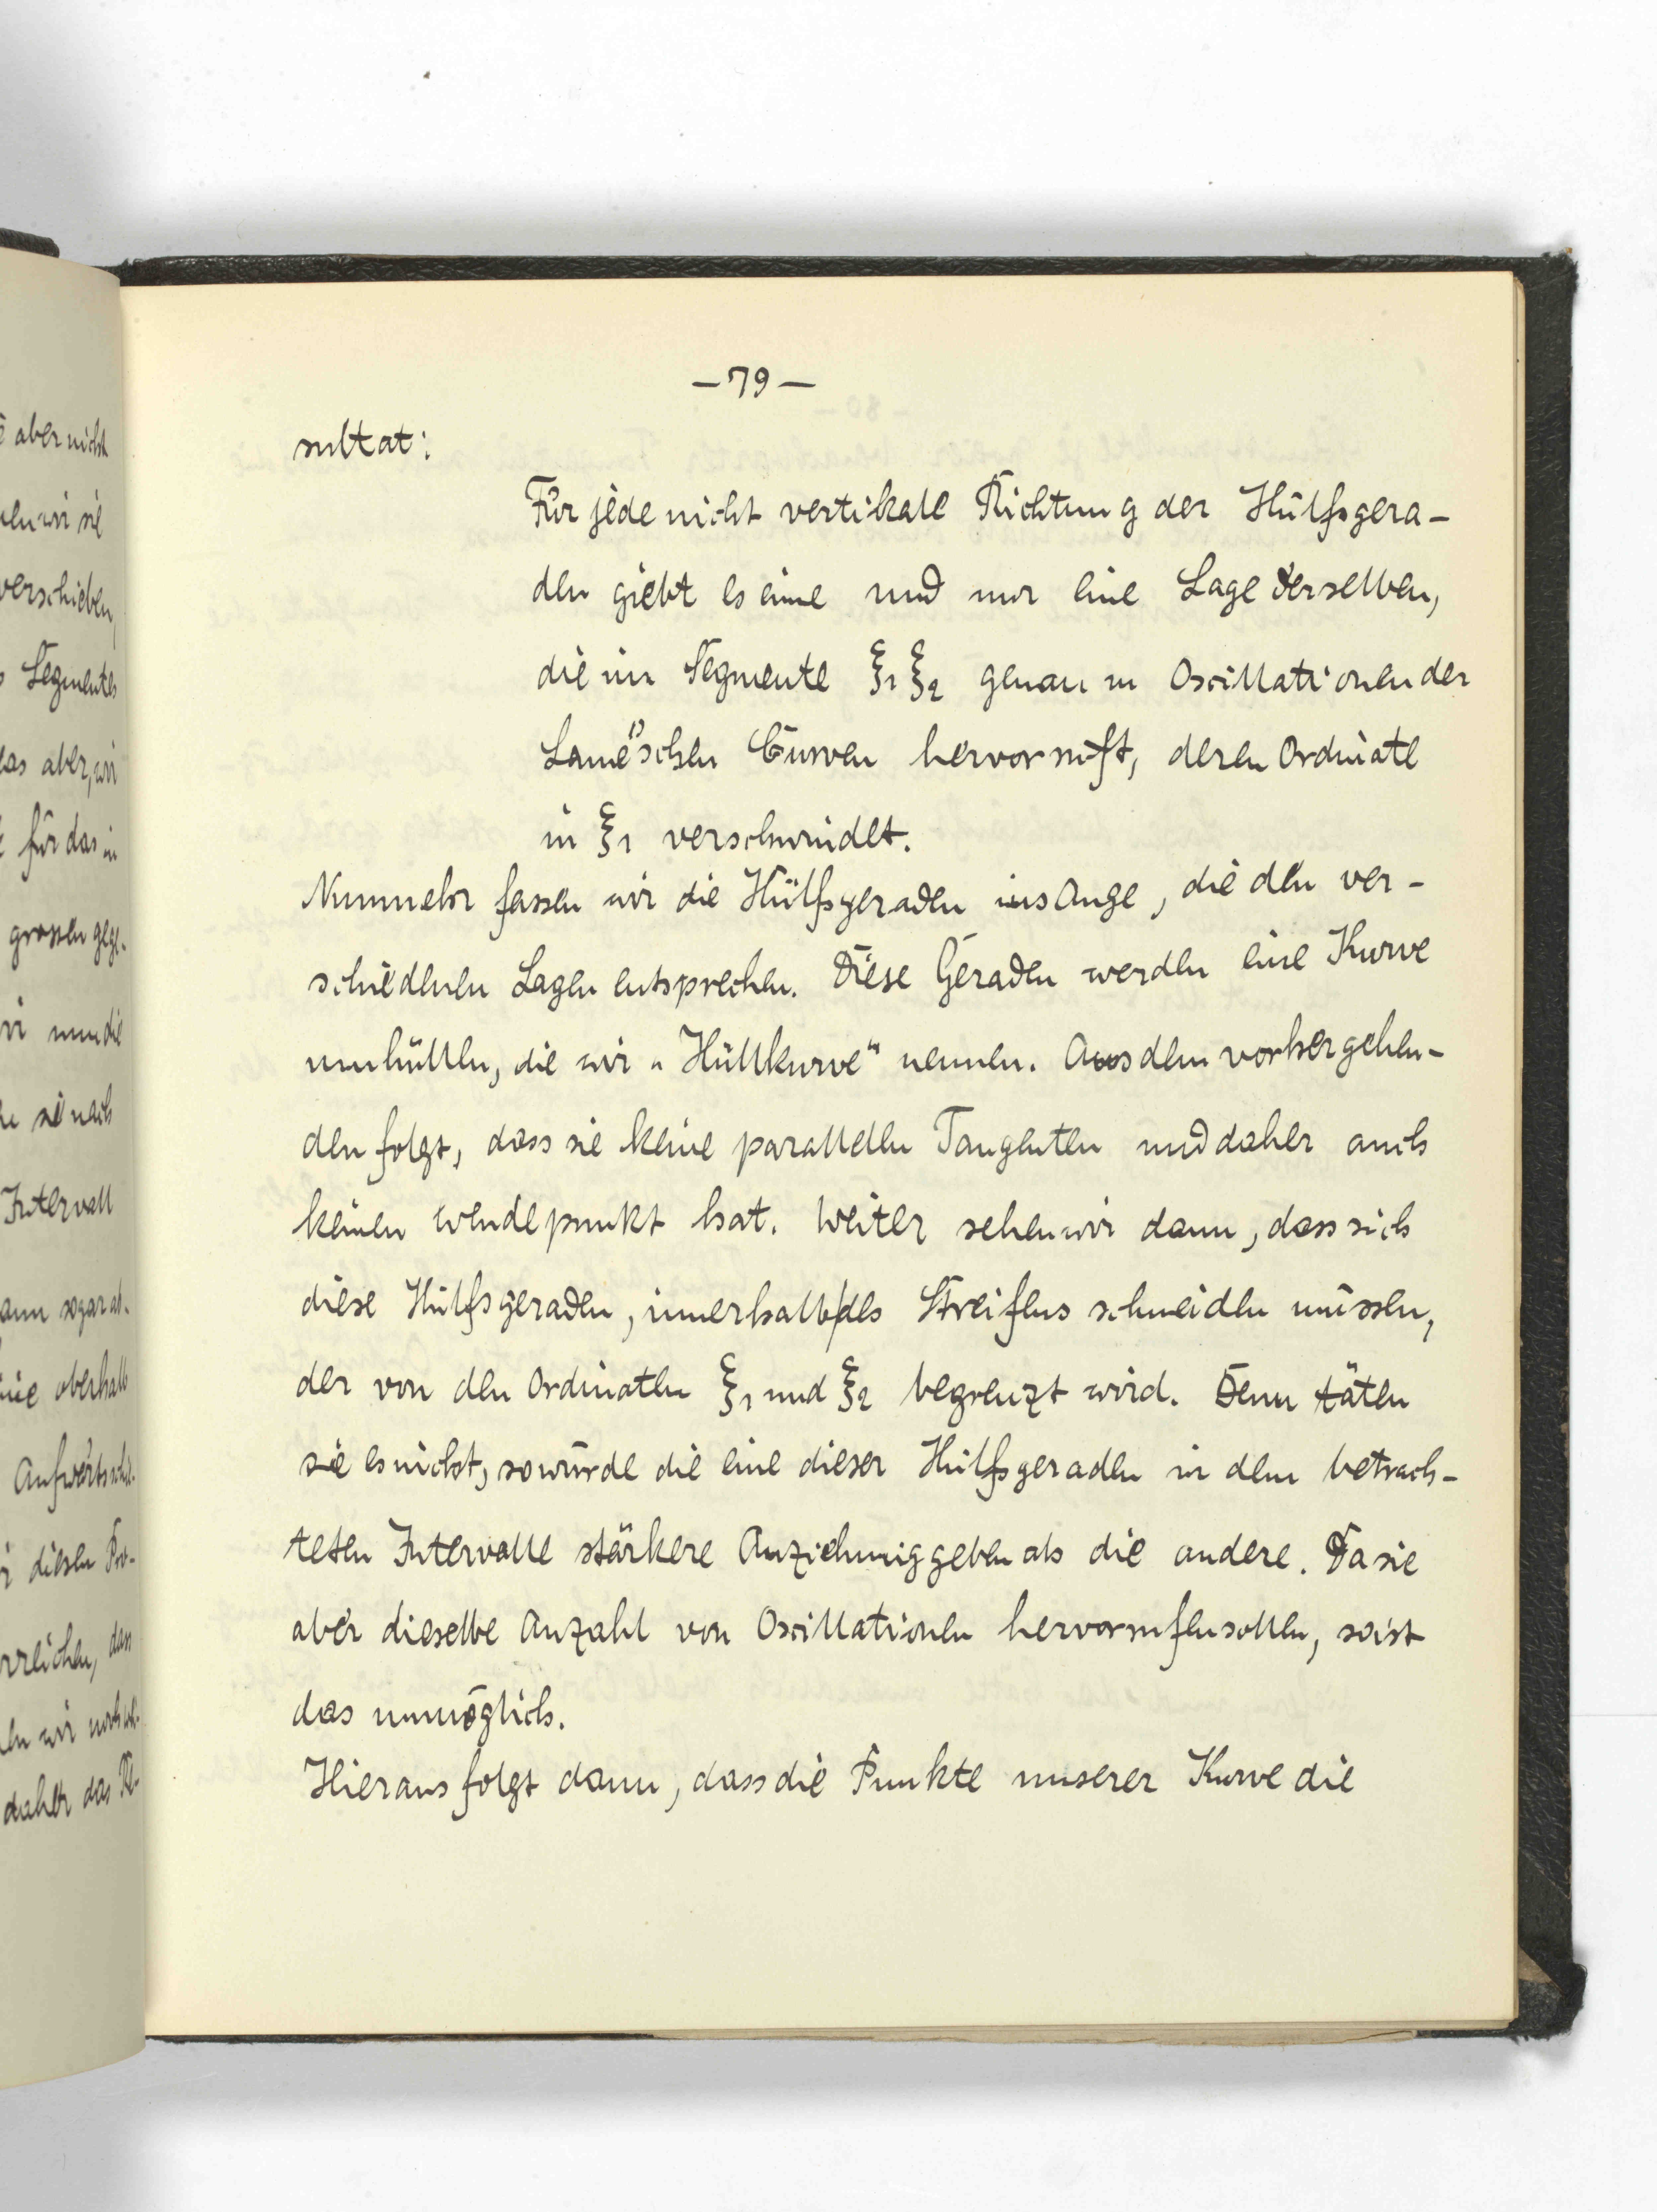 aber nicht
wir sie
verschieben,
Segmentes
das aber, wir
für das in
grossen gege-
wir nun die
sie nach
Intervall
kann sogar ab-
oberhalb
Aufwärtsschie-
diesen Pro-
erreichen, dass
wir noch
daher das Re-
—79—
sultat:
Für jede nicht vertikale Richtung der Hülfsgera-
den giebt es eine und nur eine Lage derselben,
die im Segmente ξ1 ξ2 genau m Oscillationen der
Lamé'schen Curven hervorruft, deren Ordinate
in ξ1 verschwindet.
Nunmehr fassen wir die Hülfsgeraden ins Auge, die den ver-
schiedenen Lagen entsprechen. Diese Geraden werden eine Kurve
umhüllen, die wir „Hüllkurve" nennen. Aus dem vorhergehen-
den folgt, dass sie keine parallelen Tangenten und daher auch
keinen Wendepunkt hat. Weiter sehen wir dann, dass sich
diese Hülfsgeraden, innerhalb des Streifens schneiden müssen,
der von den Ordinaten ξ1 und ξ2 begrenzt wird. Denn täten
sie es nicht, so würde die eine dieser Hülfsgeraden in dem betrach-
teten Intervalle stärkere Anziehung geben als die andere. Da sie
aber dieselbe Anzahl von Oscillationen hervorrufen sollen, so ist
das unmöglich.
Hieraus folgt dann, dass die Punkte unserer Kurve die